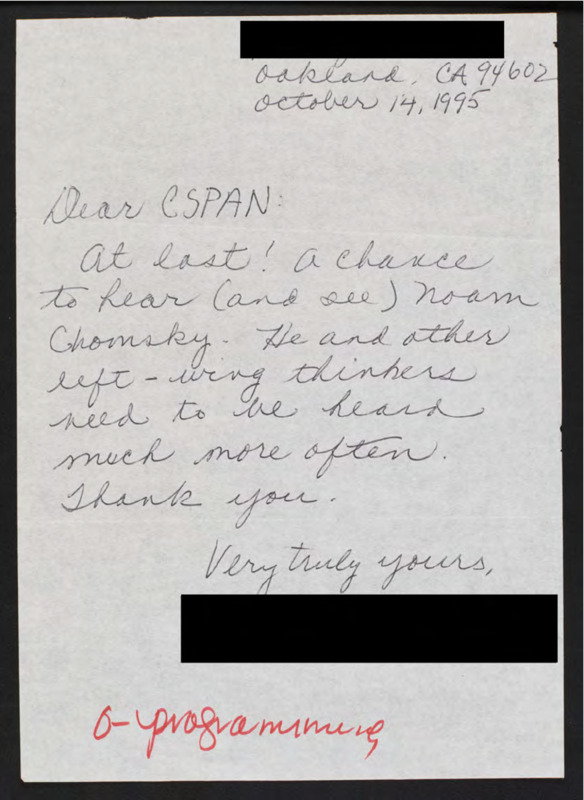 Oakland, CA 94602
October 14, 1995
Dear CSPAN:
At last! A chance
to hear (and see) Noam
Chomsky. He and other
left-wing thinkers
need to be heard
much more often.
Thank you.
Very truly yours,
o-programming